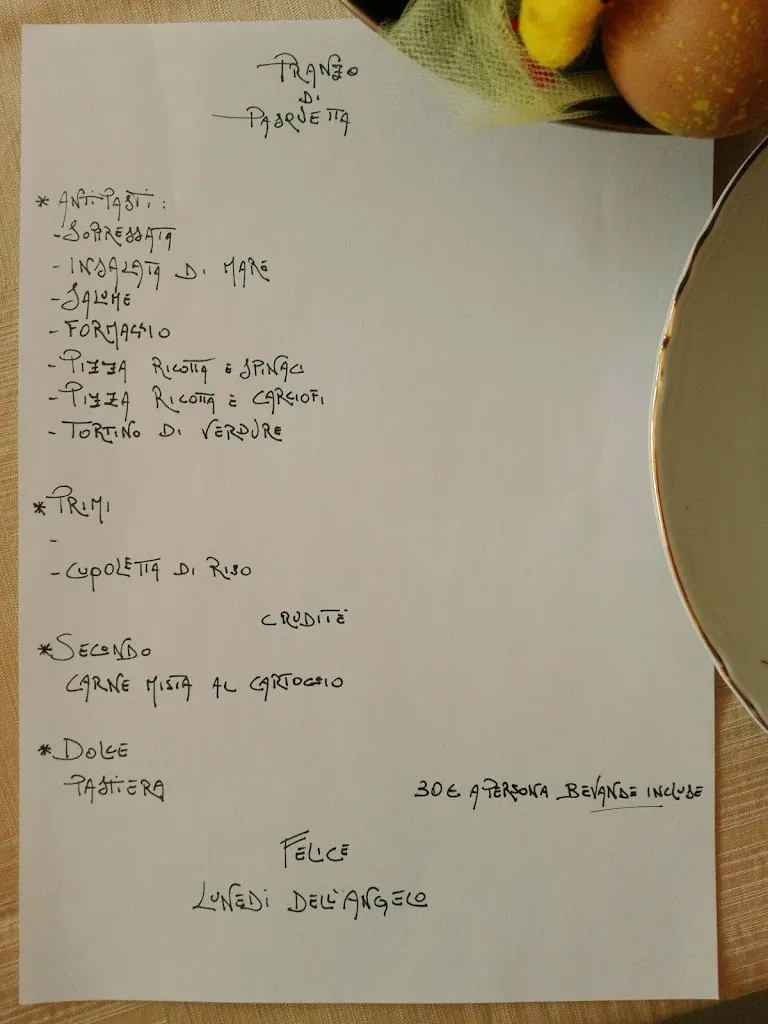 PRANZO
DI
PASQUETTA
* ANTIPASTI:
- SOPRESSATA
- INSALATA DI MARE
- SALUME
- FORMAGGIO
- PIZZA RICOTTA E SPINACI
- PIZZA RICOTTA E CARCIOFI
- TORTINO DI VERDURE
* PRIMI
-
- CUPOLETTA DI RISO
CRUDITÈ
* SECONDO
CARNE MISTA AL CARTOCCIO
* DOLCE
PASTIERA
30€ A PERSONA BEVANDE INCLUSE
FELICE
LUNEDÌ DELL'ANGELO